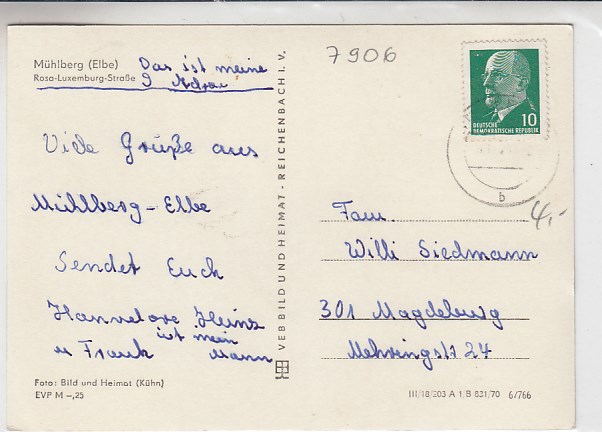 Mühlberg (Elbe)
Rosa-Luxemburg-Straße
Das ist meine
9
Viele Grüße aus
Mühlberg-Elbe
Sendet Euch
Hannelore Heinz
ist mein
u Frank Mann
Foto: Bild und Heimat (Kühn)
EVP M –,25
VEB BILD UND HEIMAT · REICHENBACH i. V.
7906
10
DEUTSCHE
DEMOKRATISCHE REPUBLIK
b
4,-
Fam.
Willi Siedmann
301 Magdeburg
Mehringstr 24
III/18/203 A 1/B 831/70 6/766